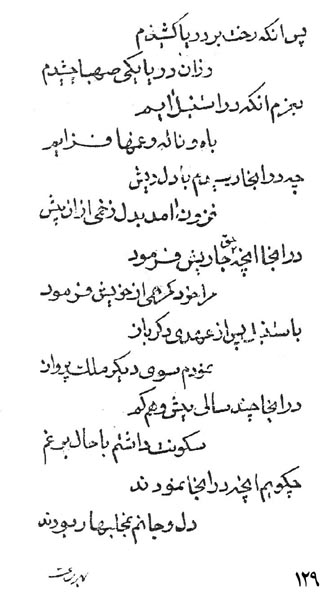 پس انکه رخت بر دریا کشیدم
وزان دریا یکی صهبا چشیدم
بعزم انکه در استنبل ایم
باه و ناله و غمها فزایم
چه در انجا رسیدم با دل ریش
فزون امد بدل زخمی از ان پیش
در انجا انچه حق جاریش فرمود
مرا خود کمرهی از خویش فرمود
باستنبل پس از عهدی دکر باز
نمودم سوی دیکر ملک پرواز
در انجا چند سالی بیش و هم کم
سکونت داشتم با حال پر غم
چکویم انچه در انجا نمودند
دل و جانم بمخلبها ربودند
۱۲۹